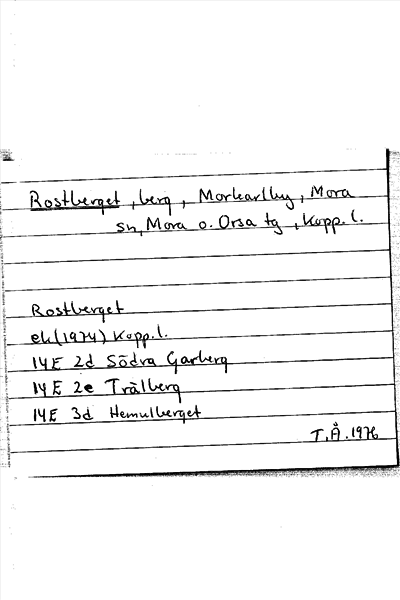 Rostberget, berg, Morkarlby, Mora
sn, Mora o. Orsa tg, Kopp. l.
Rostberget
ek (1974) Kopp. l.
14E 2d Södra Garberg
14E 2e Trålberg
14E 3d Hemulberget
T. Å. 1976